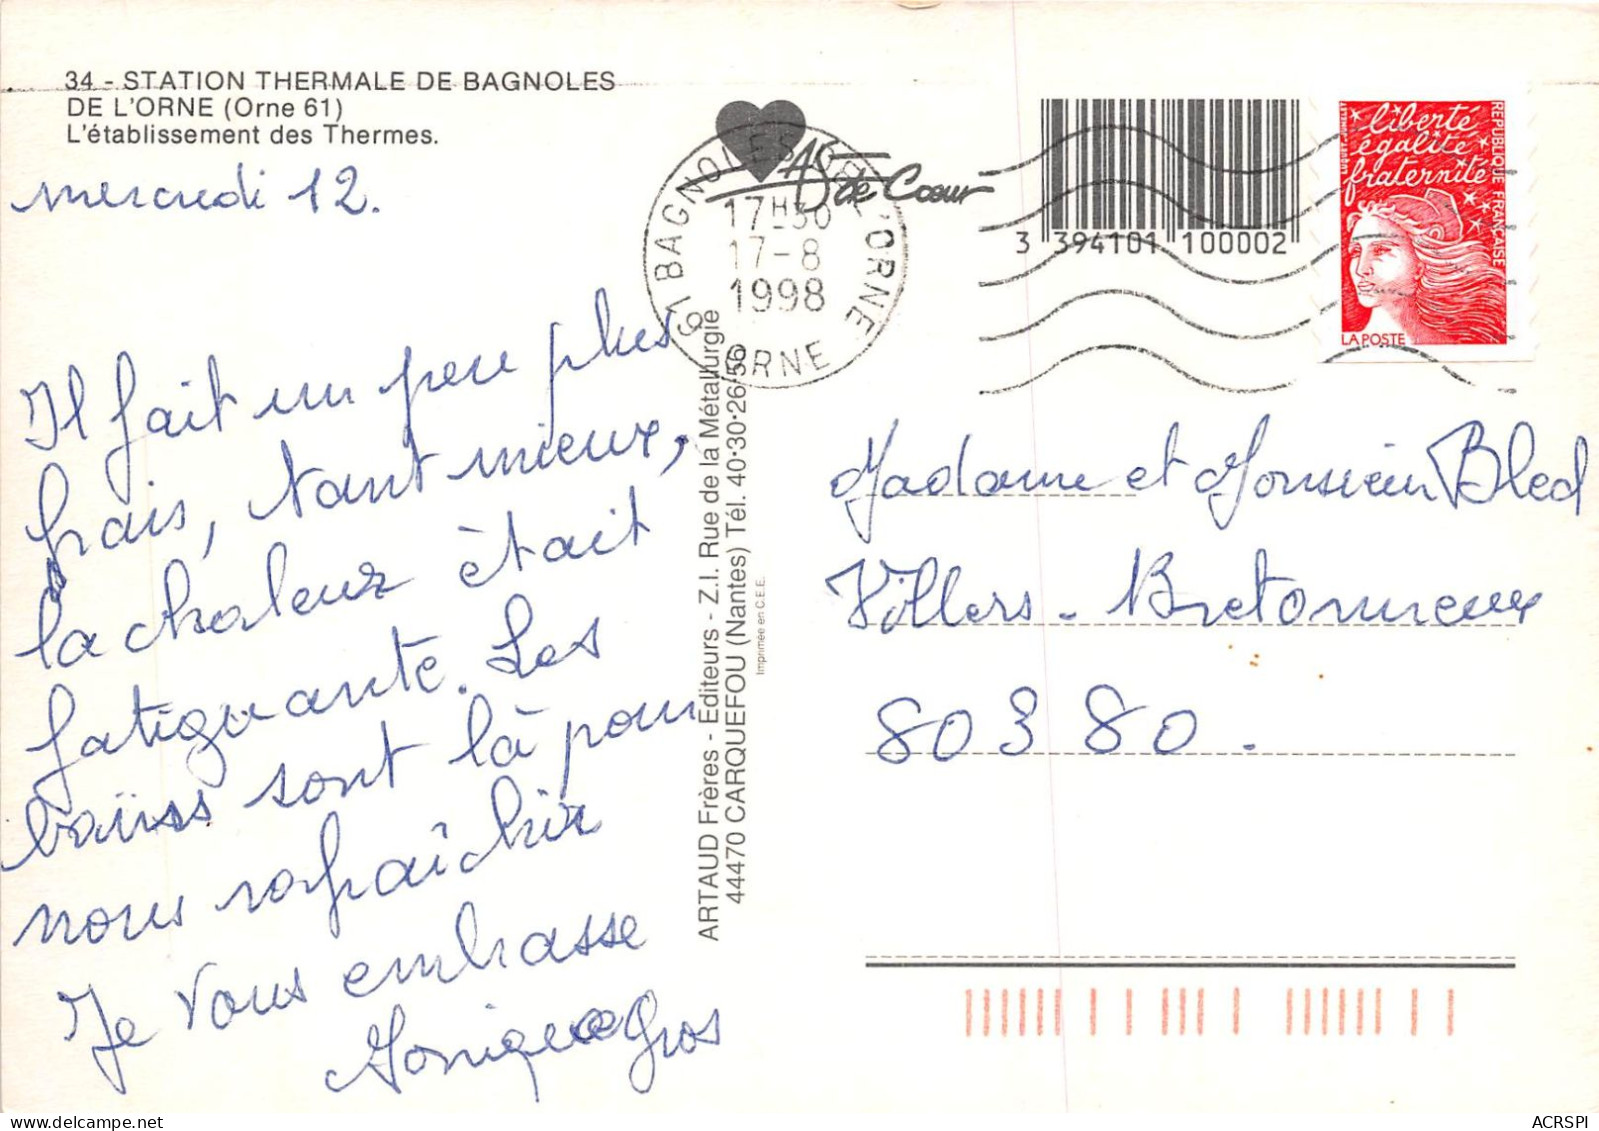 34 - STATION THERMALE DE BAGNOLES
DE L'ORNE (Orne 61)
L'établissement des Thermes.
mercredi 12.
Il fait un peu plus
frais, tant mieux,
la chaleur était
fatiguante. Les
bains sont là pour
nous rafraîchir
Je vous embrasse
Monique Gros
ARTAUD Frères - Editeurs - Z.I. Rue de la Métallurgie
44470 CARQUEFOU (Nantes) Tél. 40·30·26·56
Imprimée en C.E.E.
AS de Coeur
61 BAGNOLES DE L'ORNE
17H30
17-8
1998
ORNE
3 394101 100002
liberté
égalité
fraternité
RÉPUBLIQUE FRANÇAISE
LA POSTE
Madame et Monsieur Bled
Villers - Bretonneux
80380.
ACRSPI